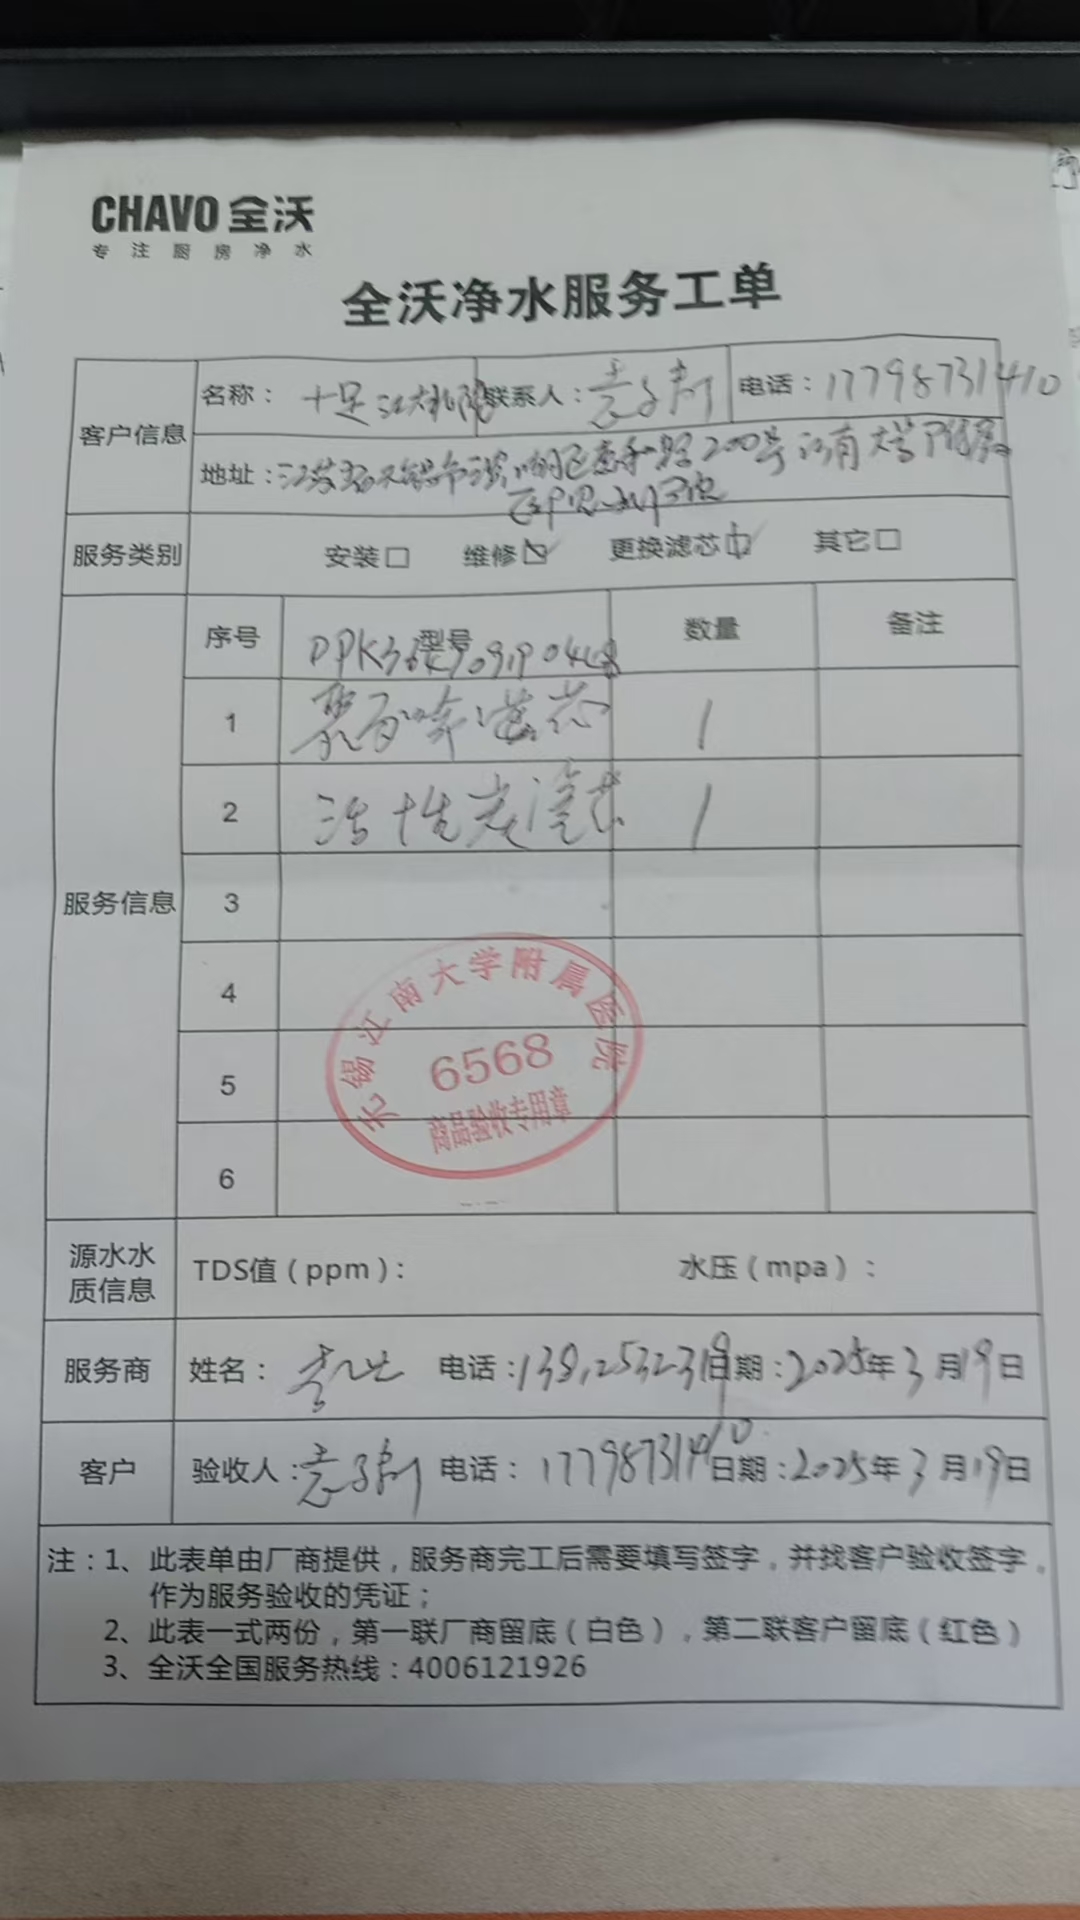 CHAVO 全沃
专注厨房净水
全沃净水服务工单
客户信息
名称：十足江大附院 联系人： 电话：17798731410
地址：江苏省无锡市滨湖区惠和路200号江南大学附属
服务类别 安装□ 维修☑ 更换滤芯☑ 其它□
服务信息
序号 型号 数量 备注
1 滤芯 1
2 活性炭滤芯 1
3
4
5
6
无锡江南大学附属医院
6568
商品验收专用章
源水水质信息 TDS值（ppm）： 水压（mpa）：
服务商 姓名： 电话：13812532319 日期：2025年3月19日
客户 验收人： 电话：17798731410 日期：2025年3月19日
注：1、此表单由厂商提供，服务商完工后需要填写签字，并找客户验收签字，
作为服务验收的凭证；
2、此表一式两份，第一联厂商留底（白色），第二联客户留底（红色）
3、全沃全国服务热线：4006121926